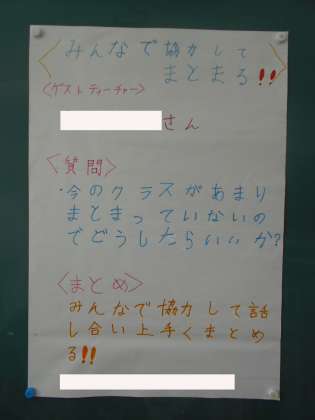 みんなで協力して
まとまる!!
〈ゲストティーチャー〉
さん
〈質問〉
・今のクラスがあまり
まとまっていないの
でどうしたらいいか?
〈まとめ〉
みんなで協力して話
し合い上手くまとめ
る!!